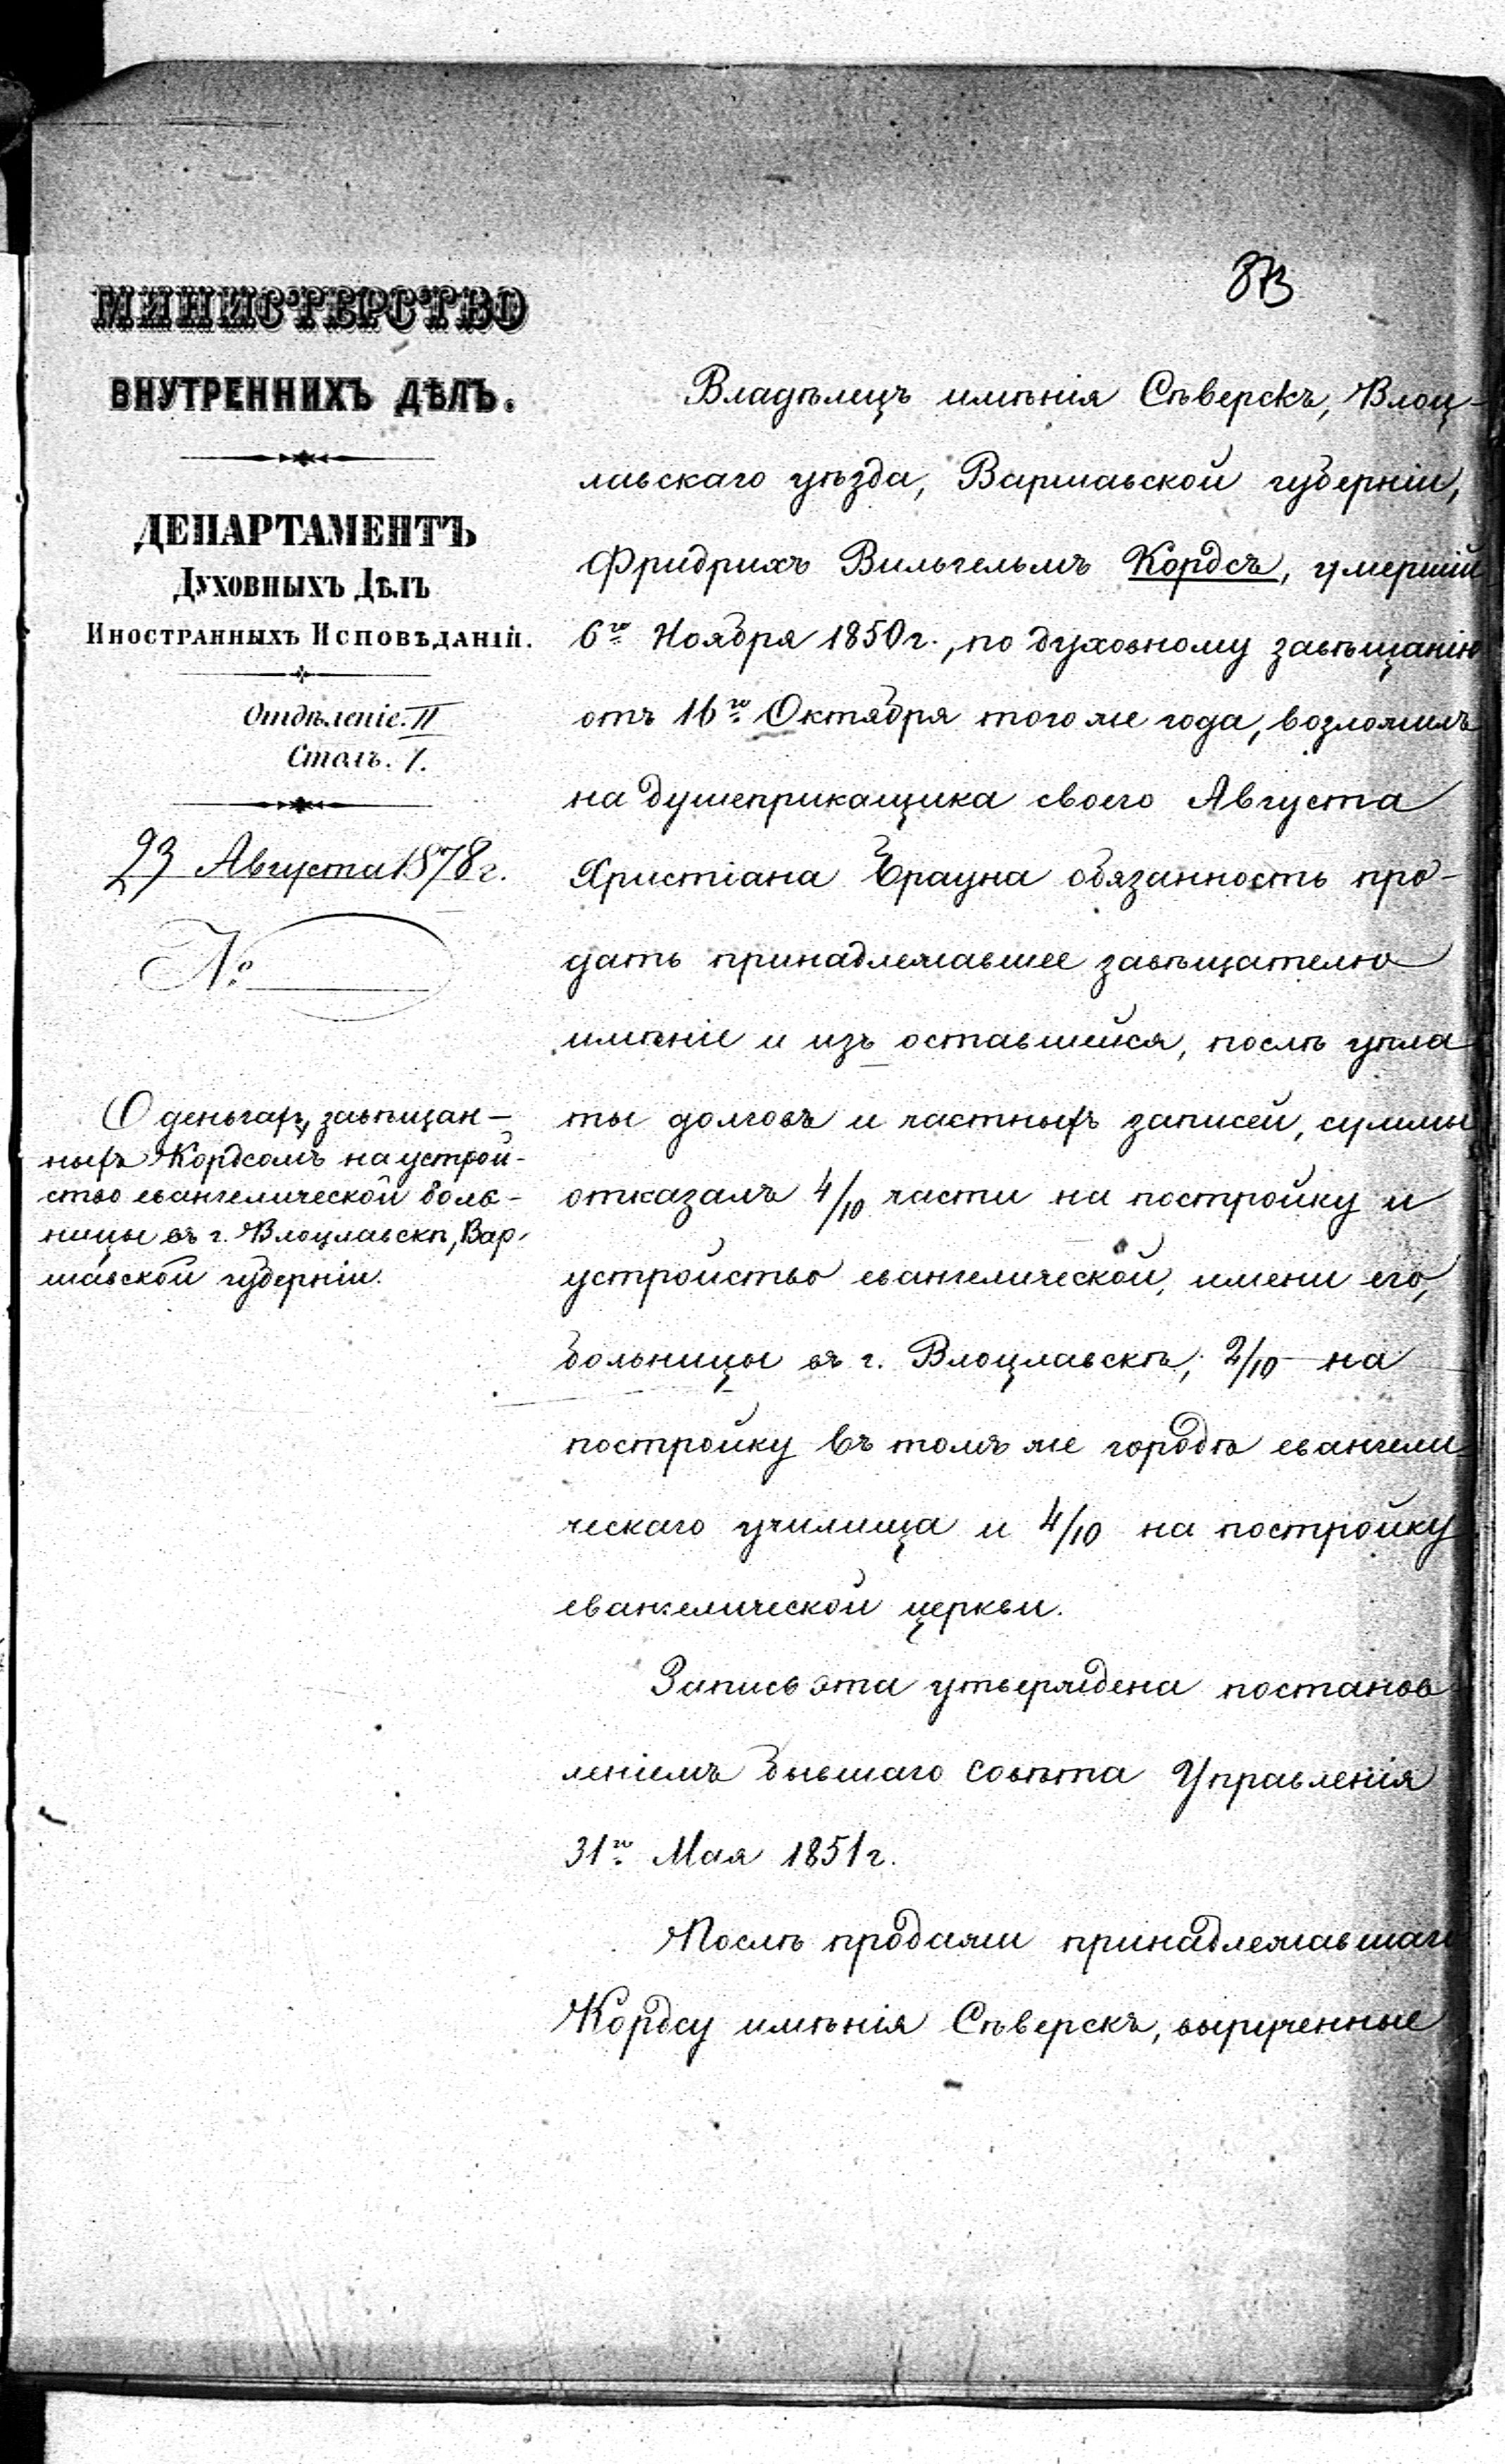 873
МИНИСТЕРСТВО
ВНУТРЕННИХЪ ДѢЛЪ.
ДЕПАРТАМЕНТЪ
Духовныхъ Дѣлъ
Иностранныхъ Исповѣданій.
Отдѣленіе. II
Столъ. 1.
23 Августа 1878 г.
№
О деньгахъ, завѣщан-
ныхъ Кордсомъ на устрой-
ство евангелической боль-
ницы въ г. Влоцлавскѣ, Вар-
шавской губерніи.
Владѣлецъ имѣнія Сѣверскъ, Влоц-
лавскаго уѣзда, Варшавской губерніи,
Фридрихъ Вильгельмъ Кордсъ, умершій
6го Ноября 1850 г., по духовному завѣщанію
отъ 16го Октября того же года, возложилъ
на душеприкащика своего Августа
Христіана Брауна обязанность про-
дать принадлежавшее завѣщателю
имѣніе и изъ оставшейся, послѣ упла
ты долговъ и частныхъ записей, суммы
отказалъ 4/10 части на постройку и
устройство евангелической, имени его,
больницы въ г. Влоцлавскѣ, 2/10 на
постройку въ томъ же городѣ евангели-
ческаго училища и 4/10 на постройку
евангелической церкви.
Запись эта утверждена постанов-
леніемъ бывшаго Совѣта Управленія
31го Мая 1851 г.
Послѣ продажи принадлежавшаго
Кордсу имѣнія Сѣверскъ, вырученные